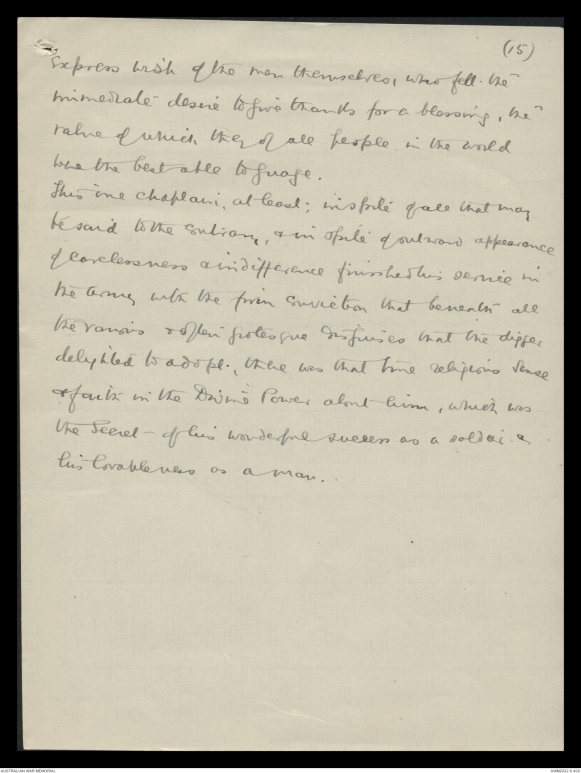 (15)
Express wish of the men themselves, who felt the
immediate desire to give thanks for a blessing, the
value of which they of all people in the world
were the best able to guage.
This one chaplain, at least, inspite of all that may
be said to the contrary, & in spite of outward appearance
of carelessness & indifference finished his service in
the army with the firm conviction that beneath all
the various & often grotesque disguises that the digger
delighted to adopt, there was that true religious sense
& faith in the Divine Power about him, which was
the secret of his wonderful success as a soldier &
his lovableness as a man.
AUSTRALIAN WAR MEMORIAL